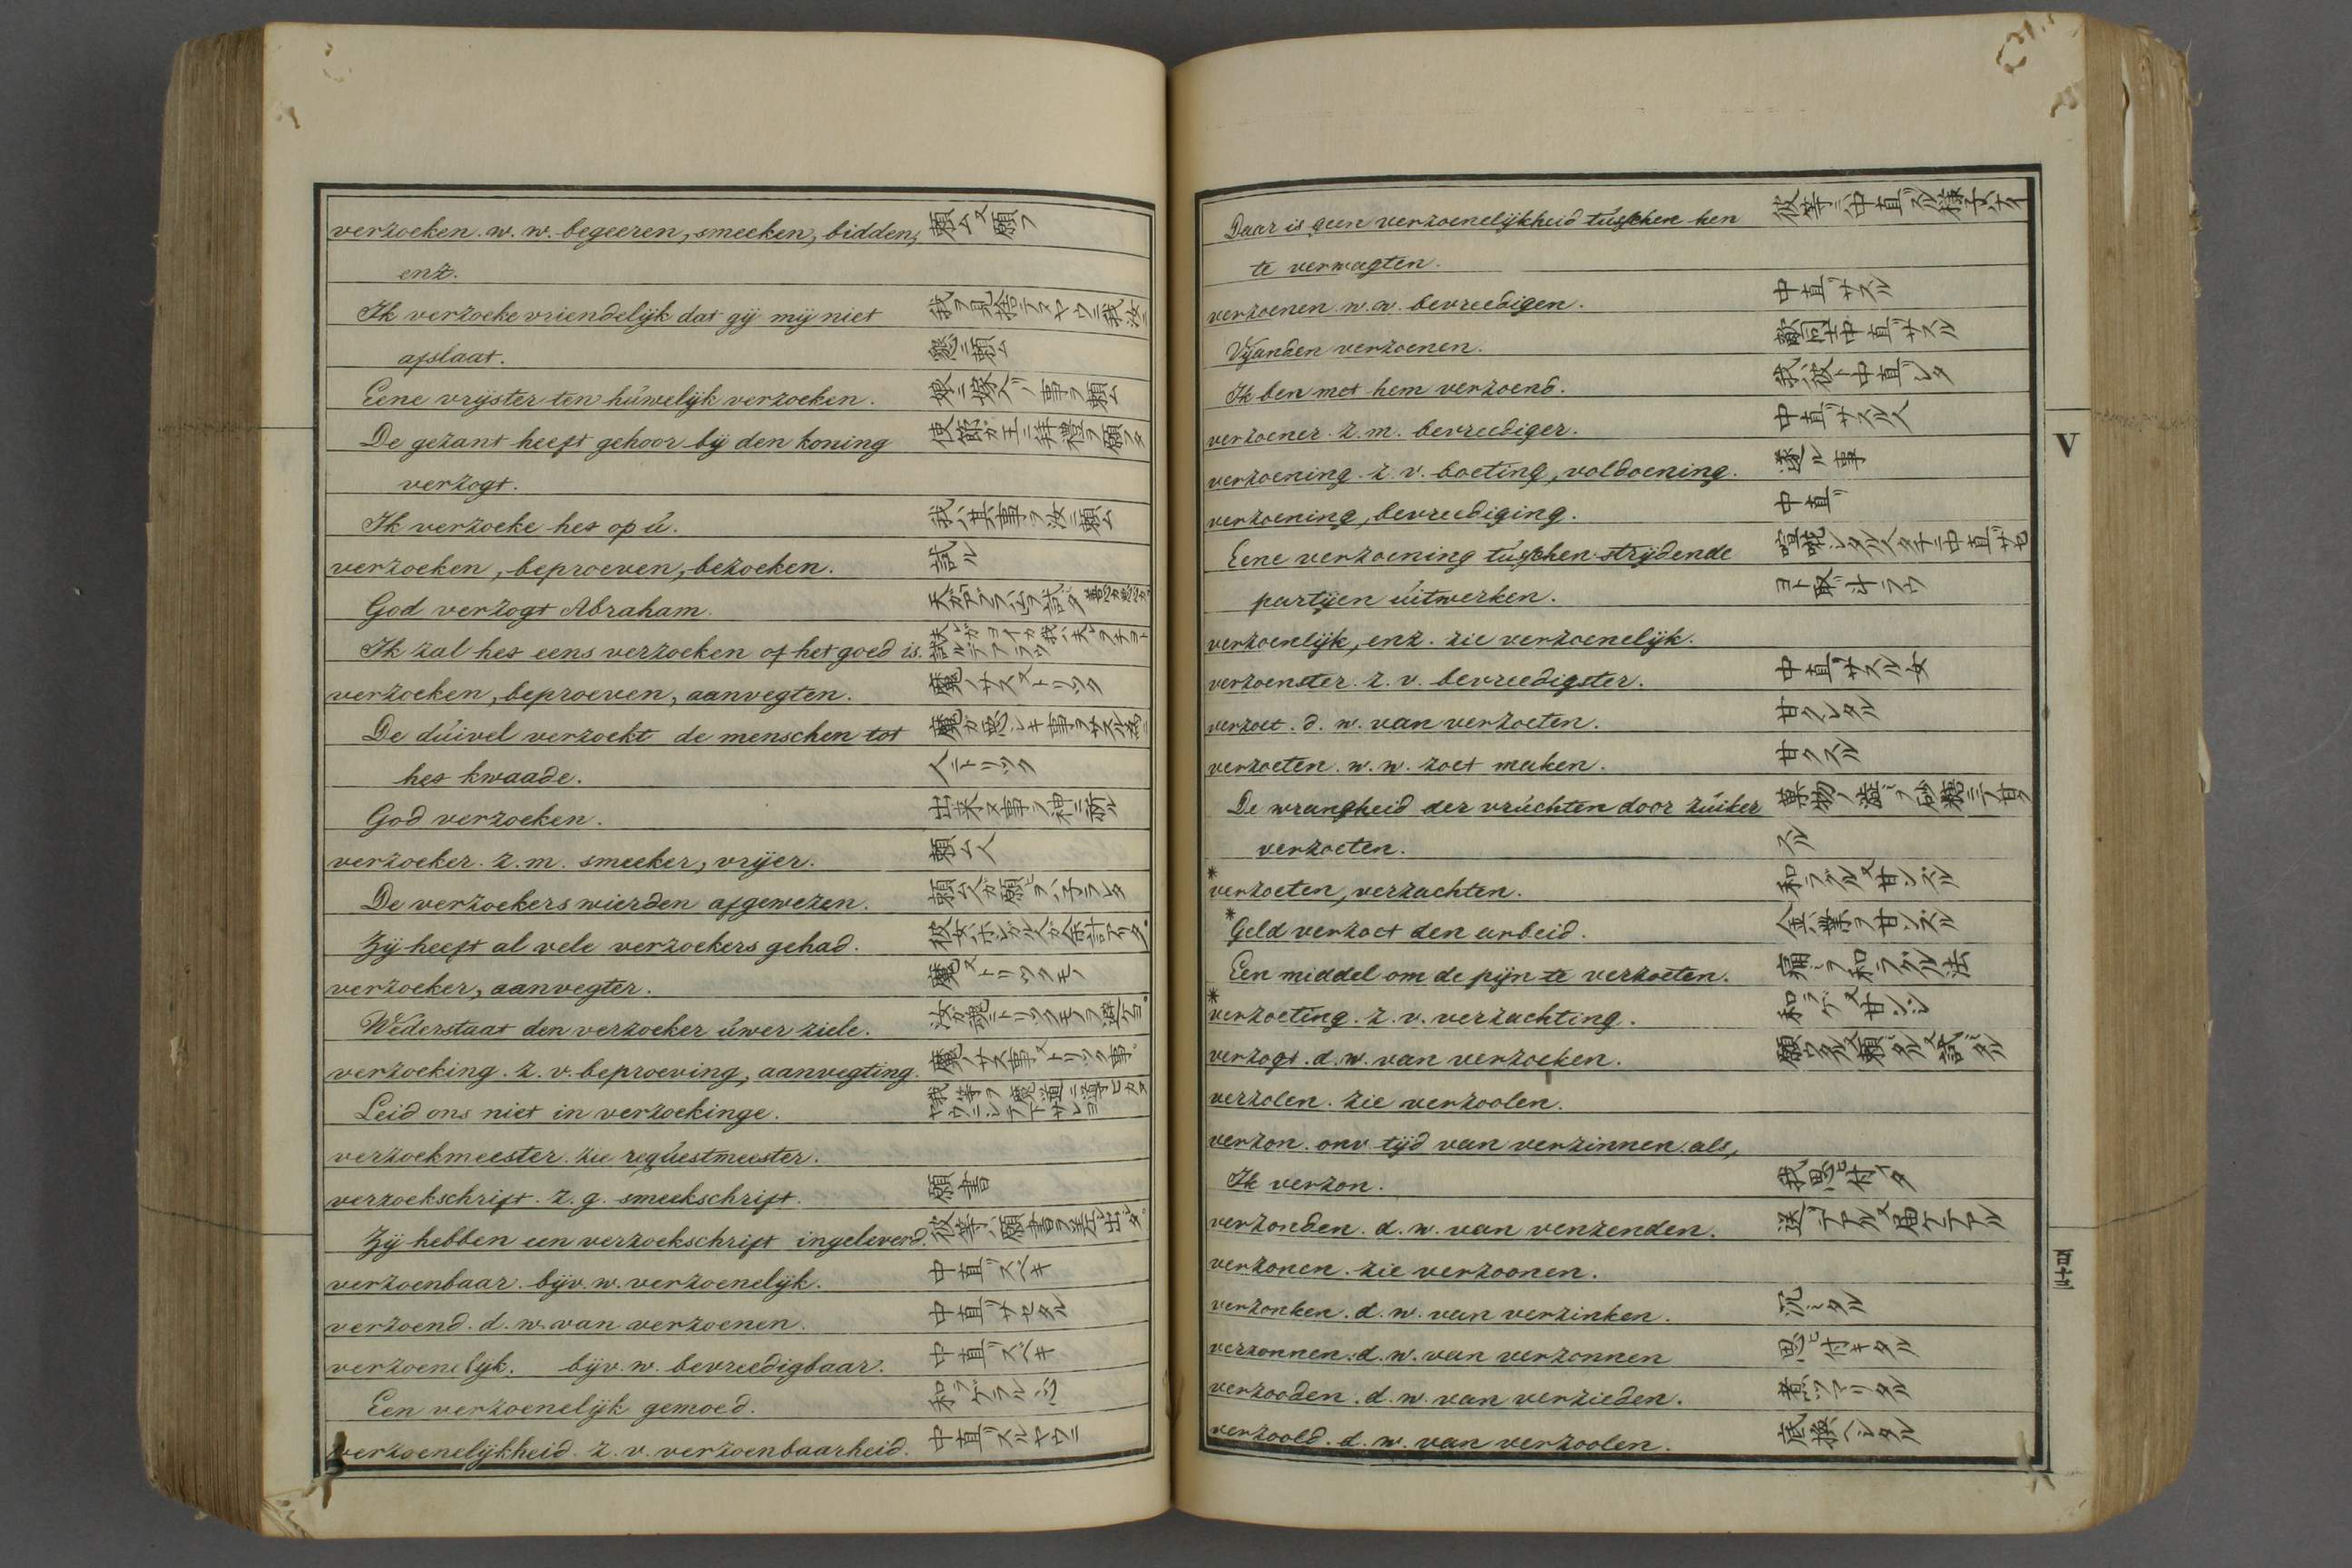 verzoeken. w. w. begeeren, smeeken, bidden, 頼ム又願フ
enz.
Ik verzoeke vriendelijk dat gij mij niet 我ヲ見捨テヌヤウニ我汝ニ
afslaat. 懇ニ頼ム
Eene vrijster ten húwelijk verzoeken. 娘ニ縁入ノ事ヲ頼ム
De gezant heeft gehoor bij den koning 使節ガ王ニ拜禮ヲ願フタ
verzogt.
Ik verzoeke het op ú. 我ハ其事ヲ汝ニ頼ム
verzoeken, beproeven, bezoeken. 試ル
God verzogt Abraham.
Ik zal het eens verzoeken of het goed is.
verzoeken, beproeven, aanvegten. 魔ノサス又トリツク
De dúivel verzoekt de menschen tot 魔ガ悪シキ事ヲサスル為ニ
het kwaade. 人ニトリツク
God verzoeken. 出来ヌ事ヲ神ニ祈ル
verzoeker. z. m. smeeker, vrijer. 頼ム人
De verzoekers wierden afgewezen.
Zij heeft al vele verzoekers gehad.
verzoeker, aanvegter. 魔又トリツクモノ
Wederstaat den verzoeker úwer ziele.
verzoeking. z. v. beproeving, aanvegting. 魔ノサス事又トリツク事
Leid ons niet in verzoekinge. 我等ヲ魔道ニ導ビカヌ
ヤウニシテ下サレヨ
verzoekmeester. zie reqúestmeester.
verzoekschrift. z. g. smeekschrift. 願書
Zij hebben een verzoekschrift ingeleverd. 彼等ハ願書ヲ差出シタ
verzoenbaar. bijv. w. verzoenelijk. 中直リスベキ
verzoend. d. w. van verzoenen. 中直リサセタル
verzoenelijk. bijv. w. bevreedigbaar. 中直リスベキ
Een verzoenelijk gemoed. 和ラゲラルヽ心
verzoenelijkheid. z. v. verzoenbaarheid. 中直リスルヤウニ
Daar is geen verzoenelijkheid tússchen hen 彼等ニハ中直リスル様子ハナイ
te verwagten.
verzoenen. w. w. bevreedigen. 中直リサスル
Vijanden verzoenen. 敵同士中直リサスル
Ik ben met hem verzoend. 我ハ彼ト中直リシタ
verzoener. z. m. bevreediger. 中直リサスル人
verzoening. z. v. boeting, voldoening. 遂ル事
verzoening, bevreediging. 中直リ
Eene verzoening tússchen strijdende 喧嘩シタル人タチニ中直リサセ
partijen úitwerken. ヨト取リ計ラウ
verzoenlijk, enz. zie verzoenelijk.
verzoenster. z. v. bevreedigster. 中直リサスル女
verzoet. d. w. van verzoeten. 甘クシタル
verzoeten. w. w. zoet maken. 甘クスル
De wrangheid der vrúchten door zúiker 菓物ノ澁ミヲ砂糖ニテ甘ク
verzoeten. スル
* verzoeten, verzachten. 和ラグル又甘ンズル
* Geld verzoet den arbeid. 金ハ業ヲ甘ンズル
Een middel om de pijn te verzoeten. 痛ミヲ和ラグル法
* verzoeting. z. v. verzachting. 和ラゲ又甘ンジ
verzogt. d. w. van verzoeken. 願ウタル又頼ミタル又試ミタル
verzolen. zie verzoolen.
verzon. onv. tijd van verzinnen. als,
Ik verzon. 我思ヒ付イタ
verzonden. d. w. van venzenden. 送リテアル又届ケテアル
verzonen. zie verzoonen.
verzonken. d. w. van verzinken. 沉ミタル
verzonnen. d. w. van verzonnen 思ヒ付キタル
verzooden. d. w. van verzieden. 煮ツマリタル
verzoold. d. w. van verzoolen. 底換ヘシタル
V